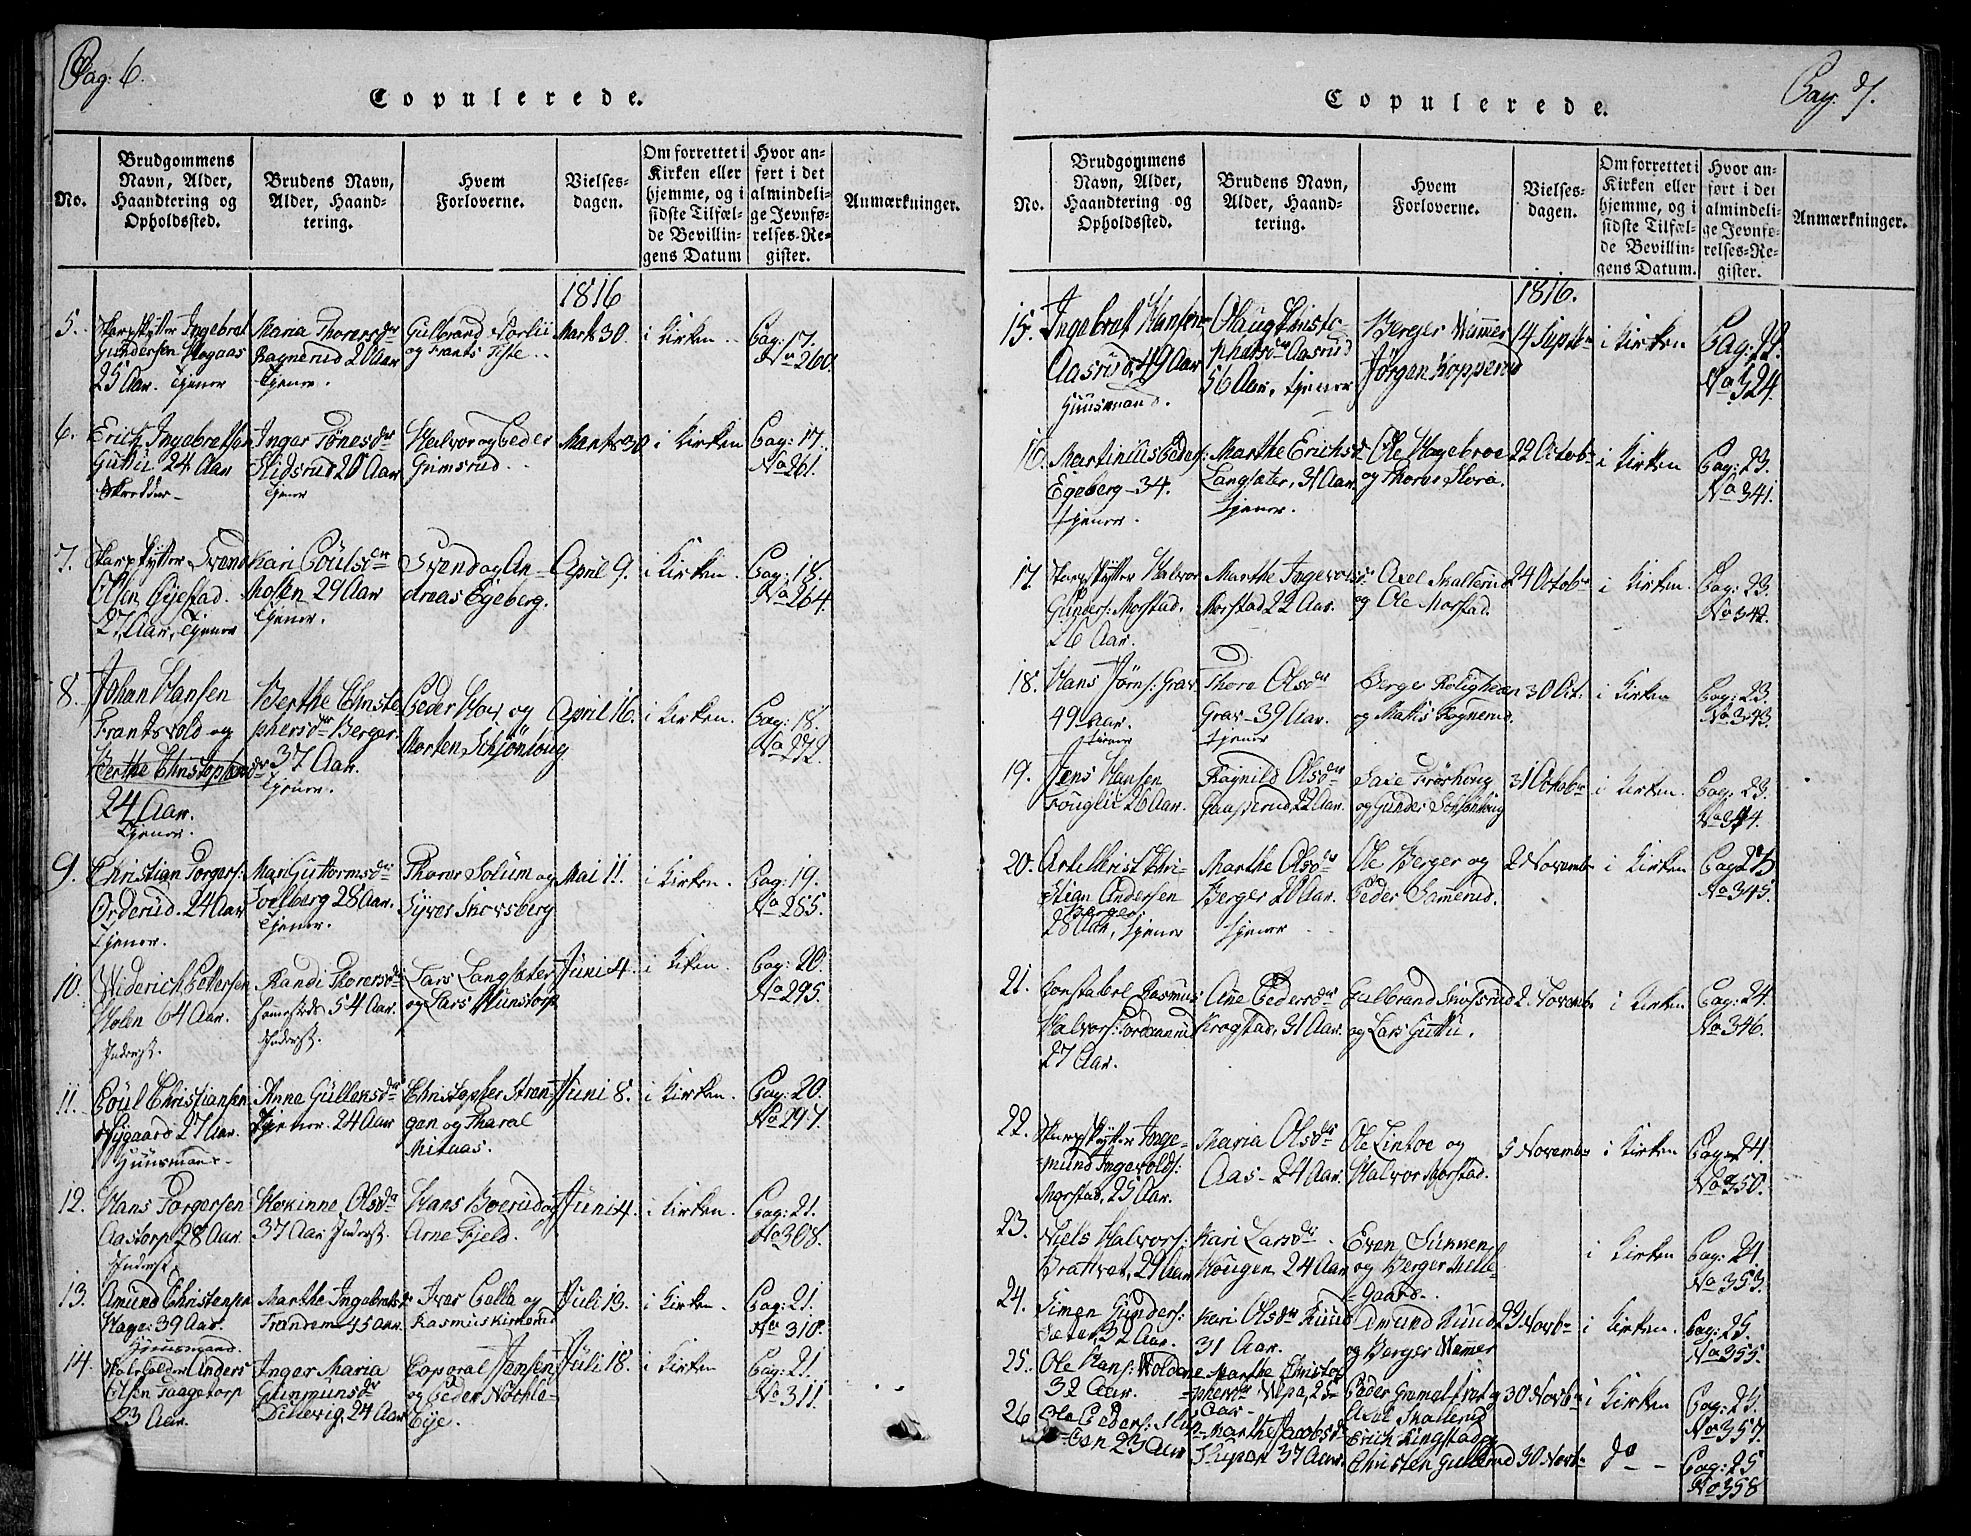 Pag: 6.
Copulerede.
No.
Brudgommens
Navn, Alder,
Haandtering og
Opholdssted.
Brudens Navn,
Alder, Haand-
tering.
Hvem
Forloverne.
Vielses-
dagen.
Om forrettet i
Kirken eller
hjemme, og i
sidste Tilfæl-
de Bevillin-
gens Datum
Hvor an-
ført i det
almindeli-
ge Jevnfø-
relses-Re-
gister.
Anmærkninger.
1816
5.
Skarpskytter Ingebret
Gundersen
25 Aar. Tjener
Maria Thorersdr
Ragnerud 20 Aar
Tjener.
Gulbrand
og Frants
Marts 30.
i Kirken
Pag: 17.
No 260.
6.
Erich Ingebretsen
Guttu 24 Aar
Skredder
Inger Tønesdr
Stidsrud 20 Aar
Tjener
Halvor og Peder
Grimsrud.
Marts 30
i Kirken
Pag: 17.
No 261.
7.
Skarpskytter Svend
Olsen Øyestad.
27 Aar, Tjener
Kari Poulsdr
Molsen 29 Aar
Tjener.
Svend og An-
dreas Egeberg.
April 9.
i Kirken.
Pag: 18.
No 264
8.
Johan Hansen
Frantsvold og
Berthe Christophersdr
24 Aar.
Tjener.
Berthe Christo-
phersdr Berger.
37 Aar.
Tjener.
Peder Hoy og
Morten Schjönhoug
April 16.
i Kirken.
Pag: 18.
No 272.
9.
Christian Torgers:
Orderud. 24 Aar
Tjener.
Mari Guttormsdr
Solberg 28 Aar.
Tjener.
Thorer Solum og
Syver Skovsberg
Mai 11.
i Kirken.
Pag: 19.
No 285.
10.
Diderich Pettersen
Holen 64 Aar.
Inderst.
Randi Thorersdr
54 Aar.
Inderst.
Lars Langsæter
og Lars Hunstorp
Juni 4.
i Kirken.
Pag: 20.
No 295.
11.
Poul Christiansen
Nygaard 27 Aar.
Huusmand.
Anne Gulleksdr
Tjener. 24 Aar
Christopher Stran-
gen og Tharal
Mitaas.
Juni 8.
i Kirken.
Pag: 20.
No 297.
12.
Hans Torgersen
Aastorp 28 Aar
Inderst.
Hokinne Olsdr
37 Aar Inderst.
Hans Boerud og
Arne Fjeld.
Juni 4.
i Kirken.
Pag: 21.
No 308.
13.
Amund Christensen
Hage: 39 Aar.
Huusmand.
Marthe Ingebretsdr
Trandem 45 Aar.
Iver Calla og
Rasmus Kirkerud
Juli 13.
i Kirken.
Pag: 21.
No 310.
14.
Anders
Olsen Taagetorp
23 Aar.
Inger Maria
Gunmunsdr
Dillevig. 24 Aar
Caporal Jensen
og Peder Nörthla
Eye.
Juli 18.
i Kirken
Pag: 21.
No 311.
Pag. 7.
Copulerede.
No.
Brudgommens
Navn, Alder,
Haandtering og
Opholdssted.
Brudens Navn,
Alder, Haand-
tering.
Hvem
Forloverne.
Vielses-
dagen.
Om forrettet i
Kirken eller
hjemme, og i
sidste Tilfæl-
de Bevillin-
gens Datum.
Hvor an-
ført i det
almindeli-
ge Jevnfø-
relses-Re-
gister.
Anmærkninger.
1816.
15.
Ingebret Hansen
Aasrud. 49 Aar
Huusmand.
Olaug Christo-
phersdr Aasrud
56 Aar, tjener
Berger Hammer
Jörgen Kopperud
14 Septbr
i Kirken
Pag. 22.
No 324.
16.
Martinius Peders:
Egeberg - 34.
tjener.
Marthe Erichsdr
Langsæter, 31 Aar.
Tjener.
Ole Hagebroe
og Thorer Flora.
22 Octobr
i Kirken
Pag: 23.
No 341.
17.
Skarpskytter Halvor
Gunders: Morstad.
26 Aar.
Marthe Ingevolds:
Morstad 22 Aar.
Axel Skallerud
og Ole Morstad.
24 Octobr
i Kirken
Pag: 23.
No 342.
18.
Hans Jörns: Grav
49 Aar.
tjener
Thore Olsdr
Grav - 39 Aar.
tjener
Berger Roligheden
og Matis Ragnerud.
30 Oct.
i Kirken
Pag: 23
No 343.
19.
Jens Hansen
Fouglii 26 Aar.
Ragnild Olsdr
Gaasserud 22 Aar.
og Gunder
31 Octobr
i Kirken.
Pag. 23.
No 344.
20.
Christian Andersen
Berger
28 Aar, tjener
Marthe Olsdr
Berger 20 Aar.
tjener
Ole Berger og
Peder Sammerud.
2 Novembr
i Kirken
Pag 23
No 345.
21.
Konstabel Rasmus
Halvors:
27 Aar.
Ane Pedersdr
Krogstad, 31 Aar.
Gulbrand Skofsrud
og Lars Guttu.
2 Novembr
i Kirken
Pag: 24.
No 346.
22.
Skarpskytter Inge-
mund Ingevolds:
Morstad, 25 Aar.
Maria Olsdr
Aas - 24 Aar.
Ole Lintoe og
Halvor Morstad.
5 Novembr
i Kirken
Pag 24.
No 350.
23.
Niels Halvors:
Brattvet, 29 Aar
Kari Larsdr
Hougen 24 Aar
Even Sunnen
og Berger Melle-
Gaard.
i Kirken
Pag: 24.
No 353.
24.
Simen Gunders:
Sæter, 32 Aar.
Kari Olsdr Ruud
31 Aar.
Amund Ruud
og Berger Hammer
23 Novbr
i Kirken.
Pag: 25.
No 355.
25.
Ole Hans: Holdene
32 Aar.
Marthe Christo-
phersdr 25
Aar -
Peder Gamelfrat og
Axel Skallerud
30 Novbr
i Kirken
Pag: 25.
No 357.
26.
Ole Peders:
23 Aar
Marthe Jacobsdr
37 Aar.
Erich Ringstad og
Christen Gullerud
30 Novbr
do -
Pag: 25
No 358